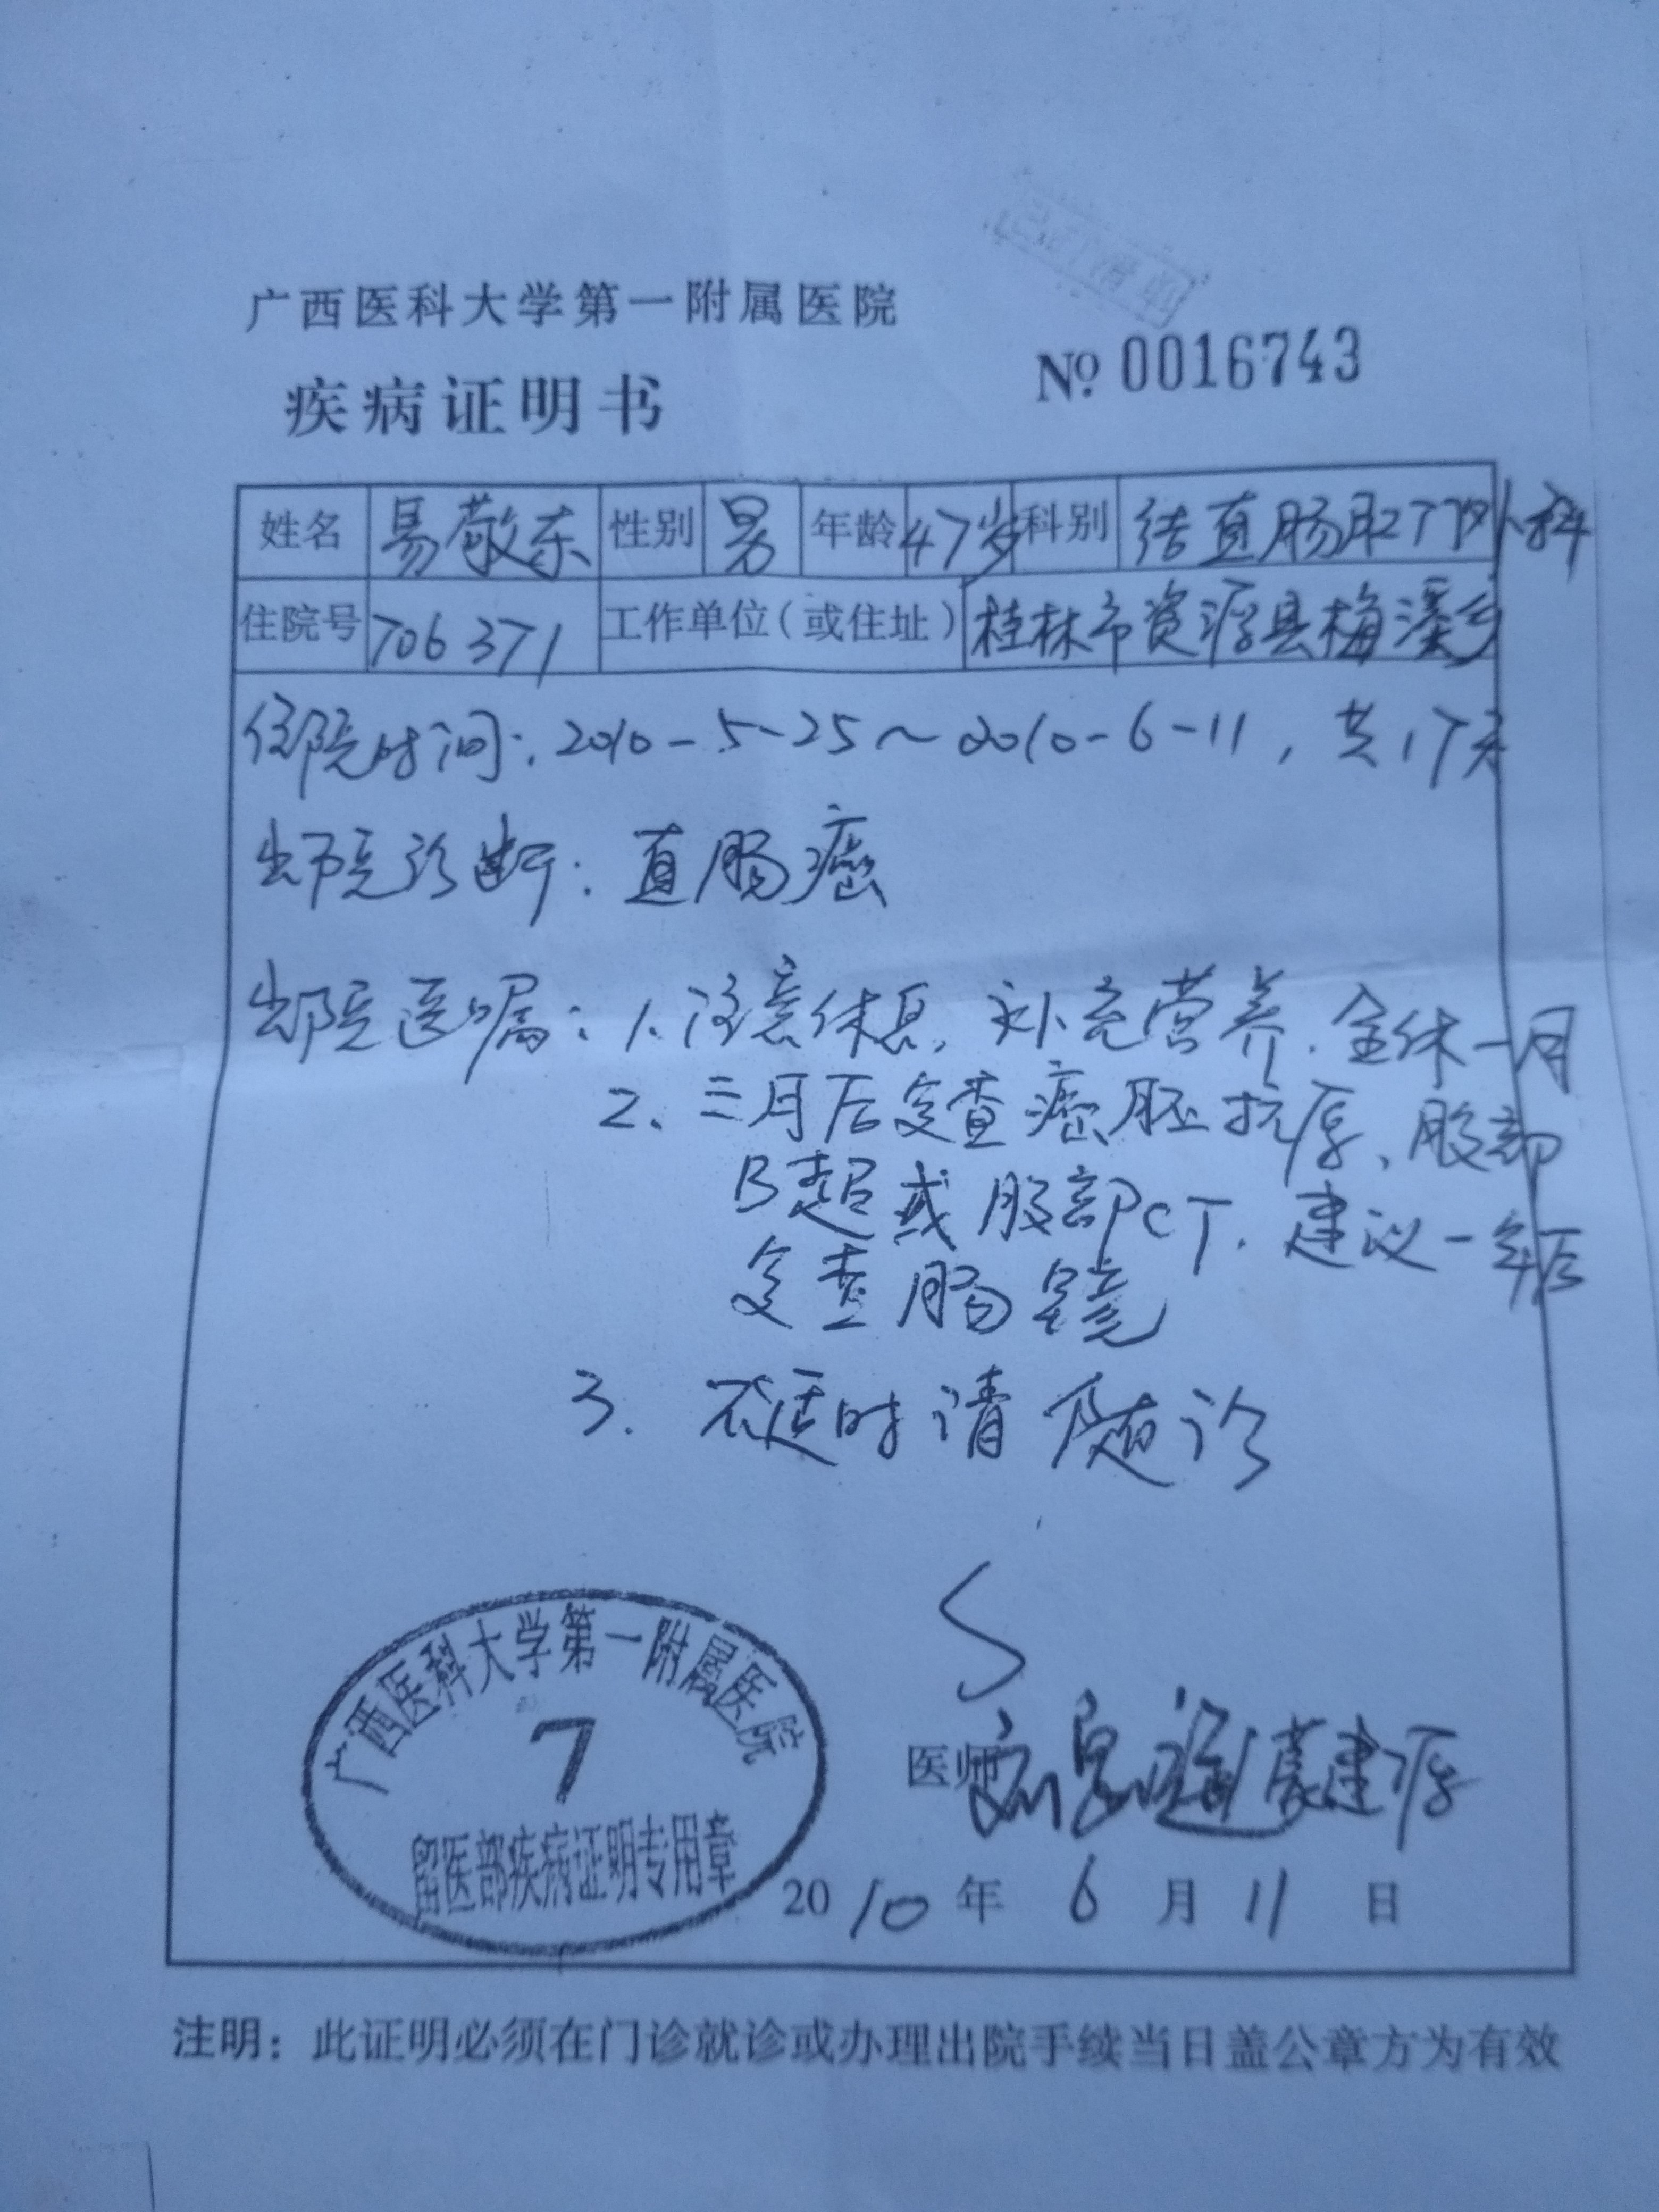 广西医科大学第一附属医院
疾病证明书
№ 0016743
姓名 易敬东 性别 男 年龄 47岁 科别 结直肠肛门外科
住院号 706371 工作单位(或住址) 桂林市资源县梅溪乡
住院时间: 2010-5-25~2010-6-11, 共17天
出院诊断: 直肠癌
出院医嘱: 1. 注意休息, 补充营养. 全休一月
2. 三月后复查癌胚抗原、腹部
B超或腹部CT. 建议一年后
复查肠镜
3. 不适时请随诊
广西医科大学第一附属医院
7
留医部疾病证明专用章
医师 蒙建源
2010年6月11日
注明: 此证明必须在门诊就诊或办理出院手续当日盖公章方为有效